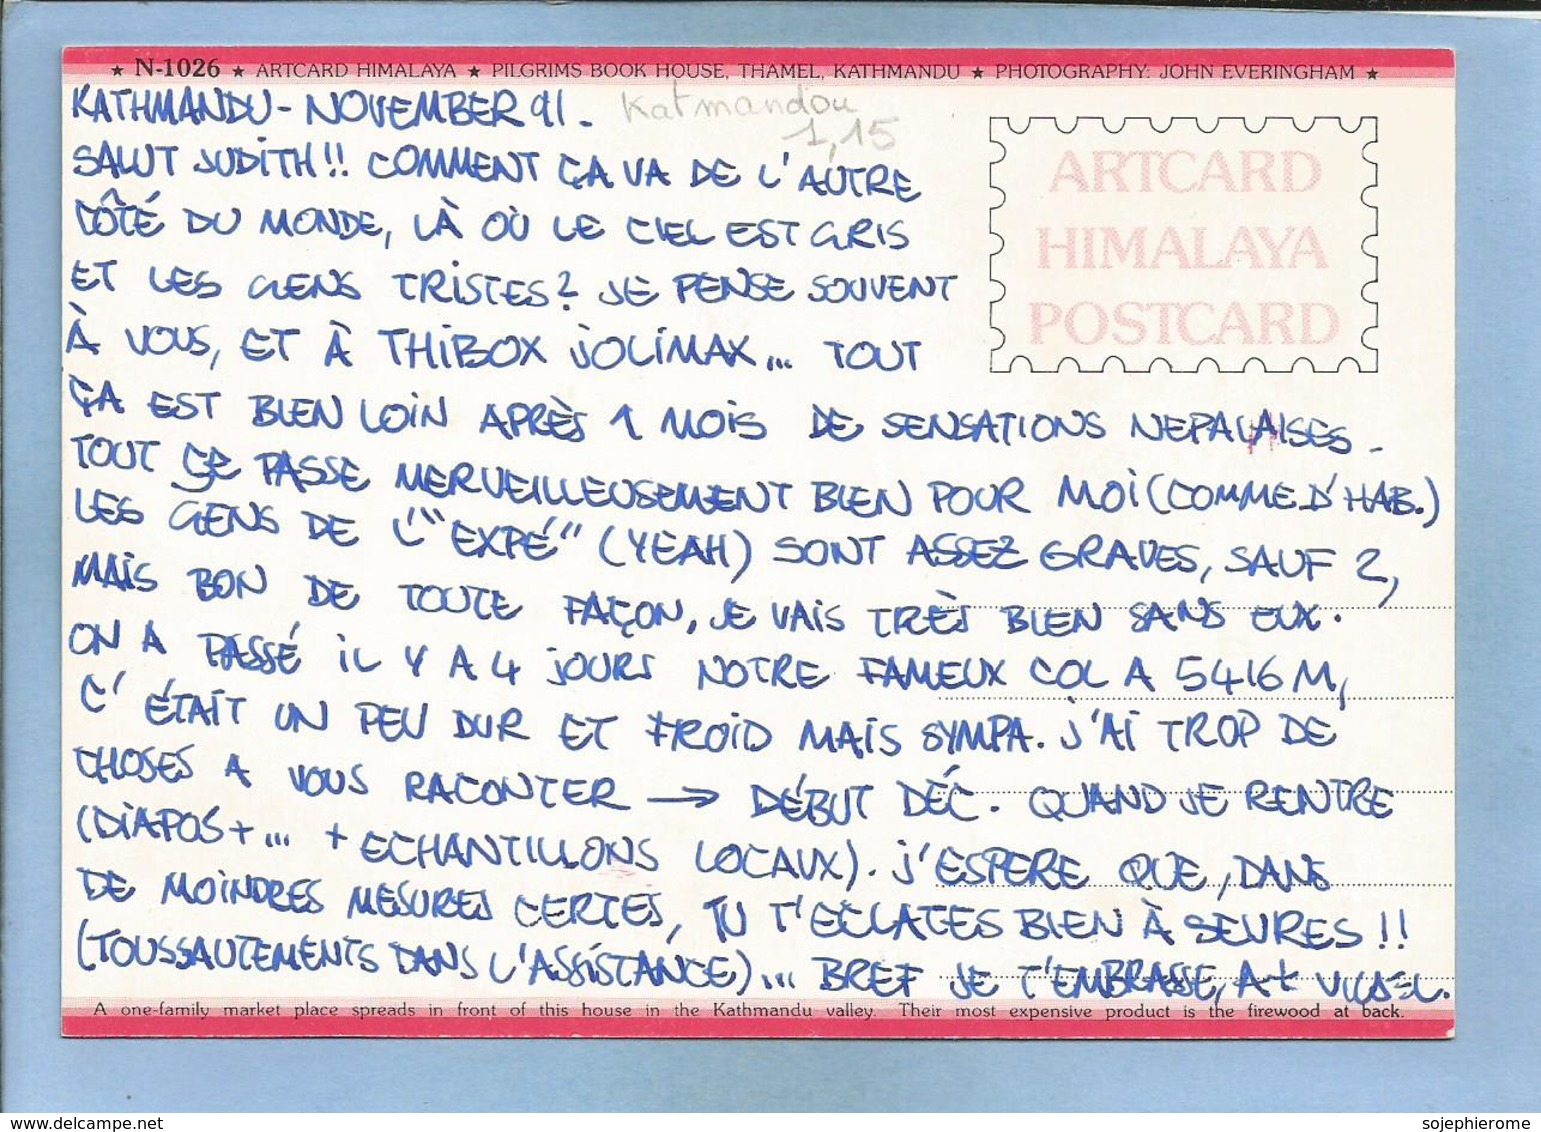 ★ N-1026 ★ ARTCARD HIMALAYA ★ PILGRIMS BOOK HOUSE, THAMEL, KATHMANDU ★ PHOTOGRAPHY: JOHN EVERINGHAM ★
KATHMANDU - NOVEMBER 91.
Katmandou
1,15
ARTCARD
HIMALAYA
POSTCARD
SALUT JUDITH!! COMMENT ÇA VA DE L'AUTRE
CÔTÉ DU MONDE, LÀ OÙ LE CIEL EST GRIS
ET LES GENS TRISTES? JE PENSE SOUVENT
À VOUS, ET À THIBOX JOLIMAX... TOUT
ÇA EST BIEN LOIN APRÈS 1 MOIS DE SENSATIONS NEPALAISES.
TOUT SE PASSE MERVEILLEUSEMENT BIEN POUR MOI (COMME D'HAB.)
LES GENS DE L'"EXPÉ" (YEAH) SONT ASSEZ GRAVES, SAUF 2,
MAIS BON DE TOUTE FAÇON, JE VAIS TRÈS BIEN SANS EUX.
ON A PASSÉ IL Y A 4 JOURS NOTRE FAMEUX COL A 5416 M,
C'ÉTAIT UN PEU DUR ET FROID MAIS SYMPA. J'AI TROP DE
CHOSES A VOUS RACONTER → DÉBUT DÉC. QUAND JE RENTRE
(DIAPOS + ... + ECHANTILLONS LOCAUX). J'ESPERE QUE, DANS
DE MOINDRES MESURES CERTES, TU T'ECLATES BIEN À SEVRES!!
(TOUSSAUTEMENTS DANS L'ASSISTANCE)... BREF JE T'EMBRASSE, A+
A one-family market place spreads in front of this house in the Kathmandu valley. Their most expensive product is the firewood at back.
delcampe.net
sojephierome